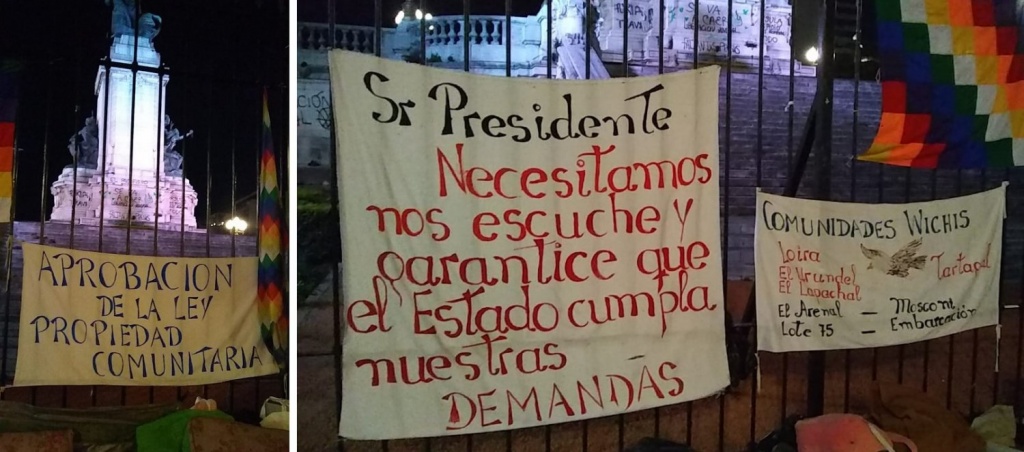 APROBACION
DE LA LEY
PROPIEDAD
COMUNITARIA
Sr Presidente
Necesitamos
nos escuche y
garantice que
el Estado cumpla
nuestras
DEMANDAS
COMUNIDADES WICHIS
Loira
El Urundel Tartagal
El Lapachal
El Arenal — Mosconi
Lote 75 — Embarcación